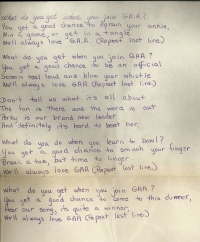 What do you get when you join G.A.A.?
You get a good chance to sprain your ankle,
Win a game, or get in a tangle
We'll always love G.A.A. (Repeat last line)
What do you get when you join GAA?
You get a good chance to be an official
Scream real loud and blow your whistle
We'll always love GAA (Repeat last line)
Don't tell us what it's all about
The fun is there and the word is out
Perky is our brand new leader
And definitely it's hard to beat her.
What do you do when you learn to bowl?
You get a good chance to smash your finger
Break a toe, but time to linger
We'll always love GAA (Repeat last line)
What do you get when you join GAA?
You get a good chance to come to this dinner,
Hear our song, its quite a winner.
We'll always love GAA (Repeat last line)